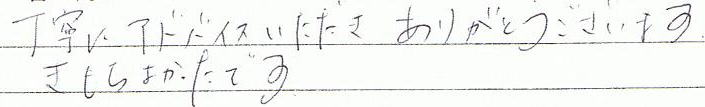 丁寧にアドバイスいただき ありがとうございます
きもちよかったです